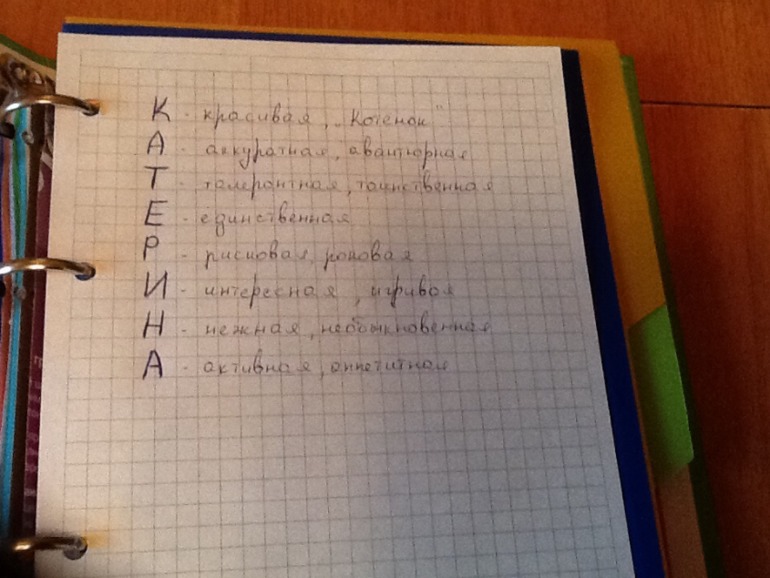 К - красивая, „Котенок"
А - аккуратная, авантюрная
Т - талерантная, таинственная
Е - единственная
Р - рисковая, роковая
И - интересная, игривая
Н - нежная, необыкновенная
А - активная, аппетитная